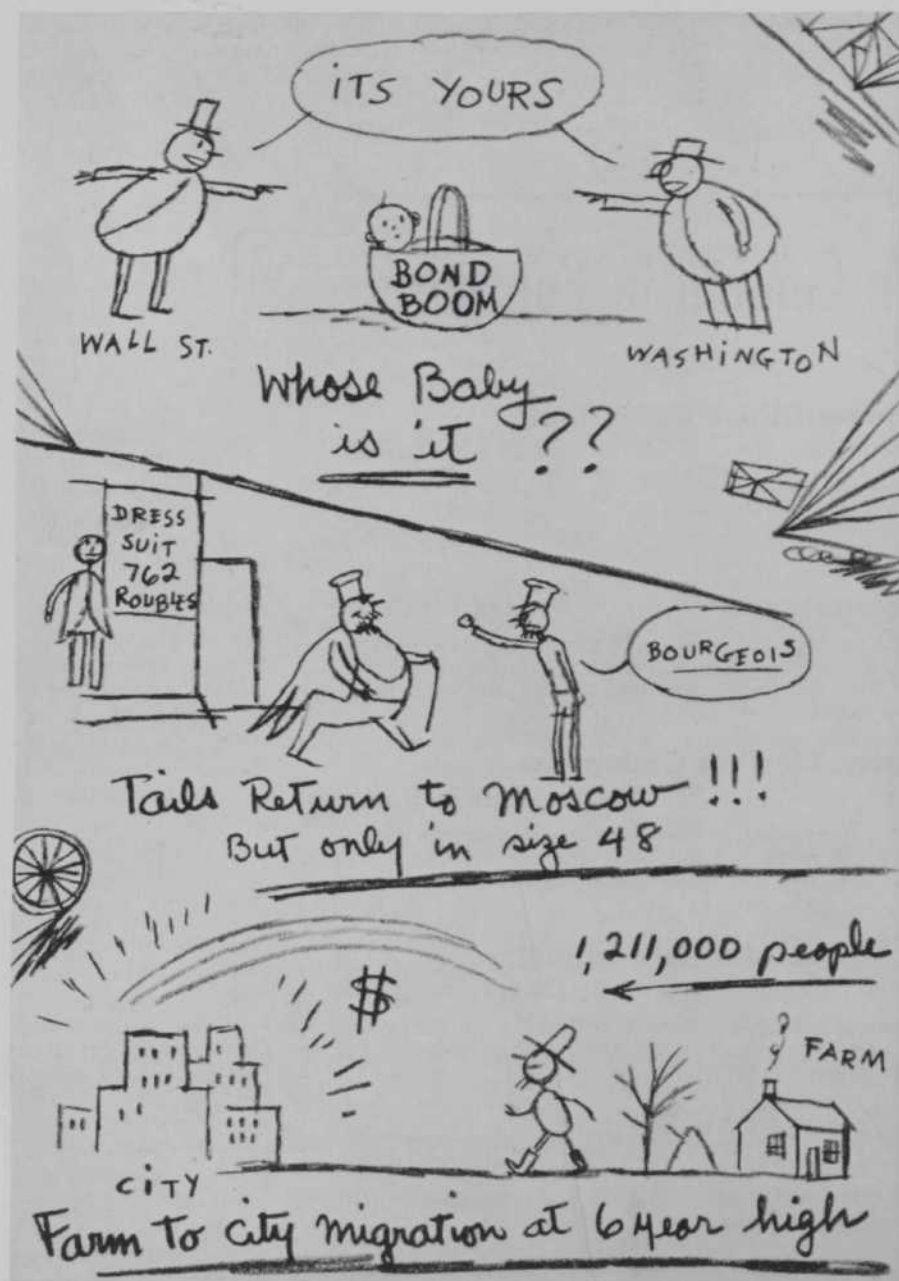 iTS YOURS
BOND
BOOM
WALL ST.
WASHINGTON
Whose Baby
is it ??
DRESS
SUiT
762
ROUBLES
BOURGEOIS
Tails Return to Moscow !!!
But only in size 48
1,211,000 people
$
FARM
CiTY
Farm To City migration at 6 year high